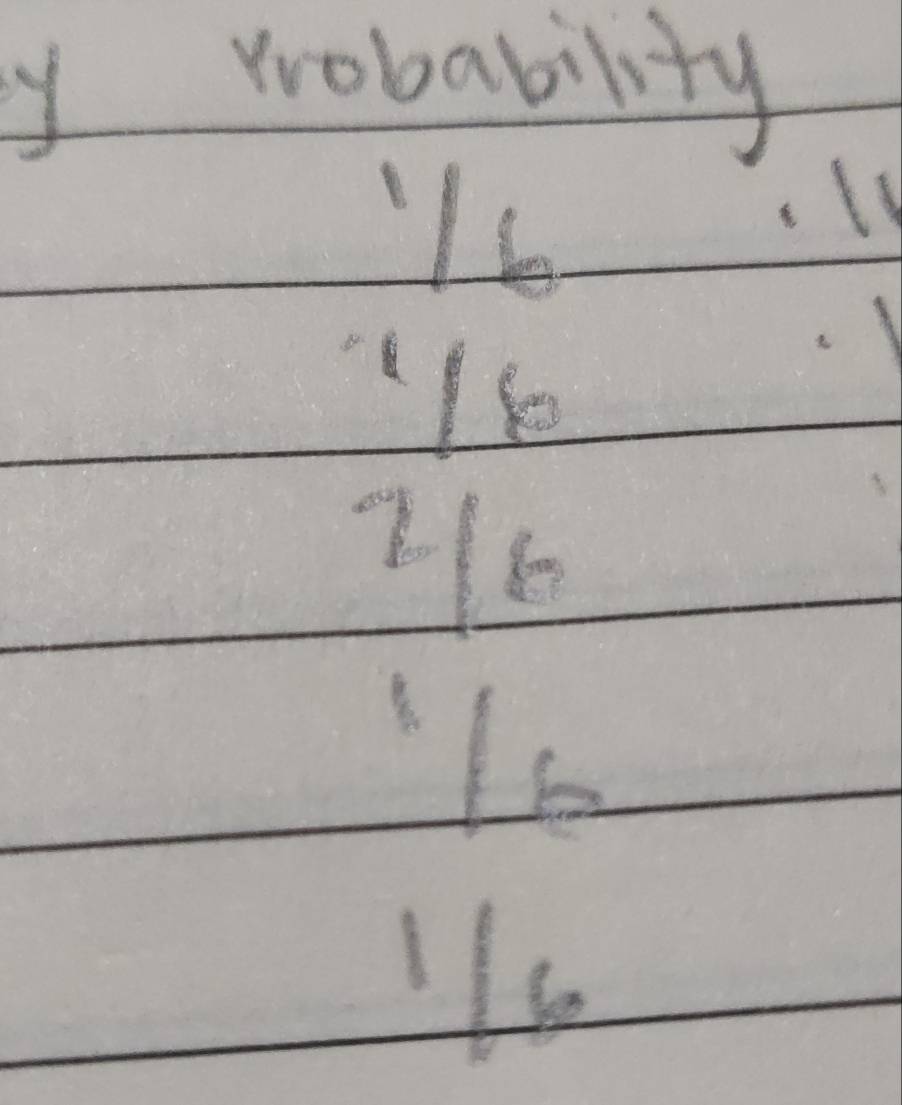 y Probability
1/6 .1
1/6 .1
2/6
1/6
1/6